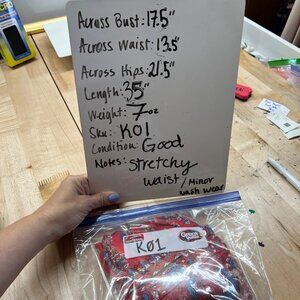 Across Bust: 17.5"
Across Waist: 13.5"
Across Hips: 21.5"
Length: 35"
Weight: 7oz
Sku: K01
Condition: Good
Notes: Stretchy
waist / Minor
wash wear
K01